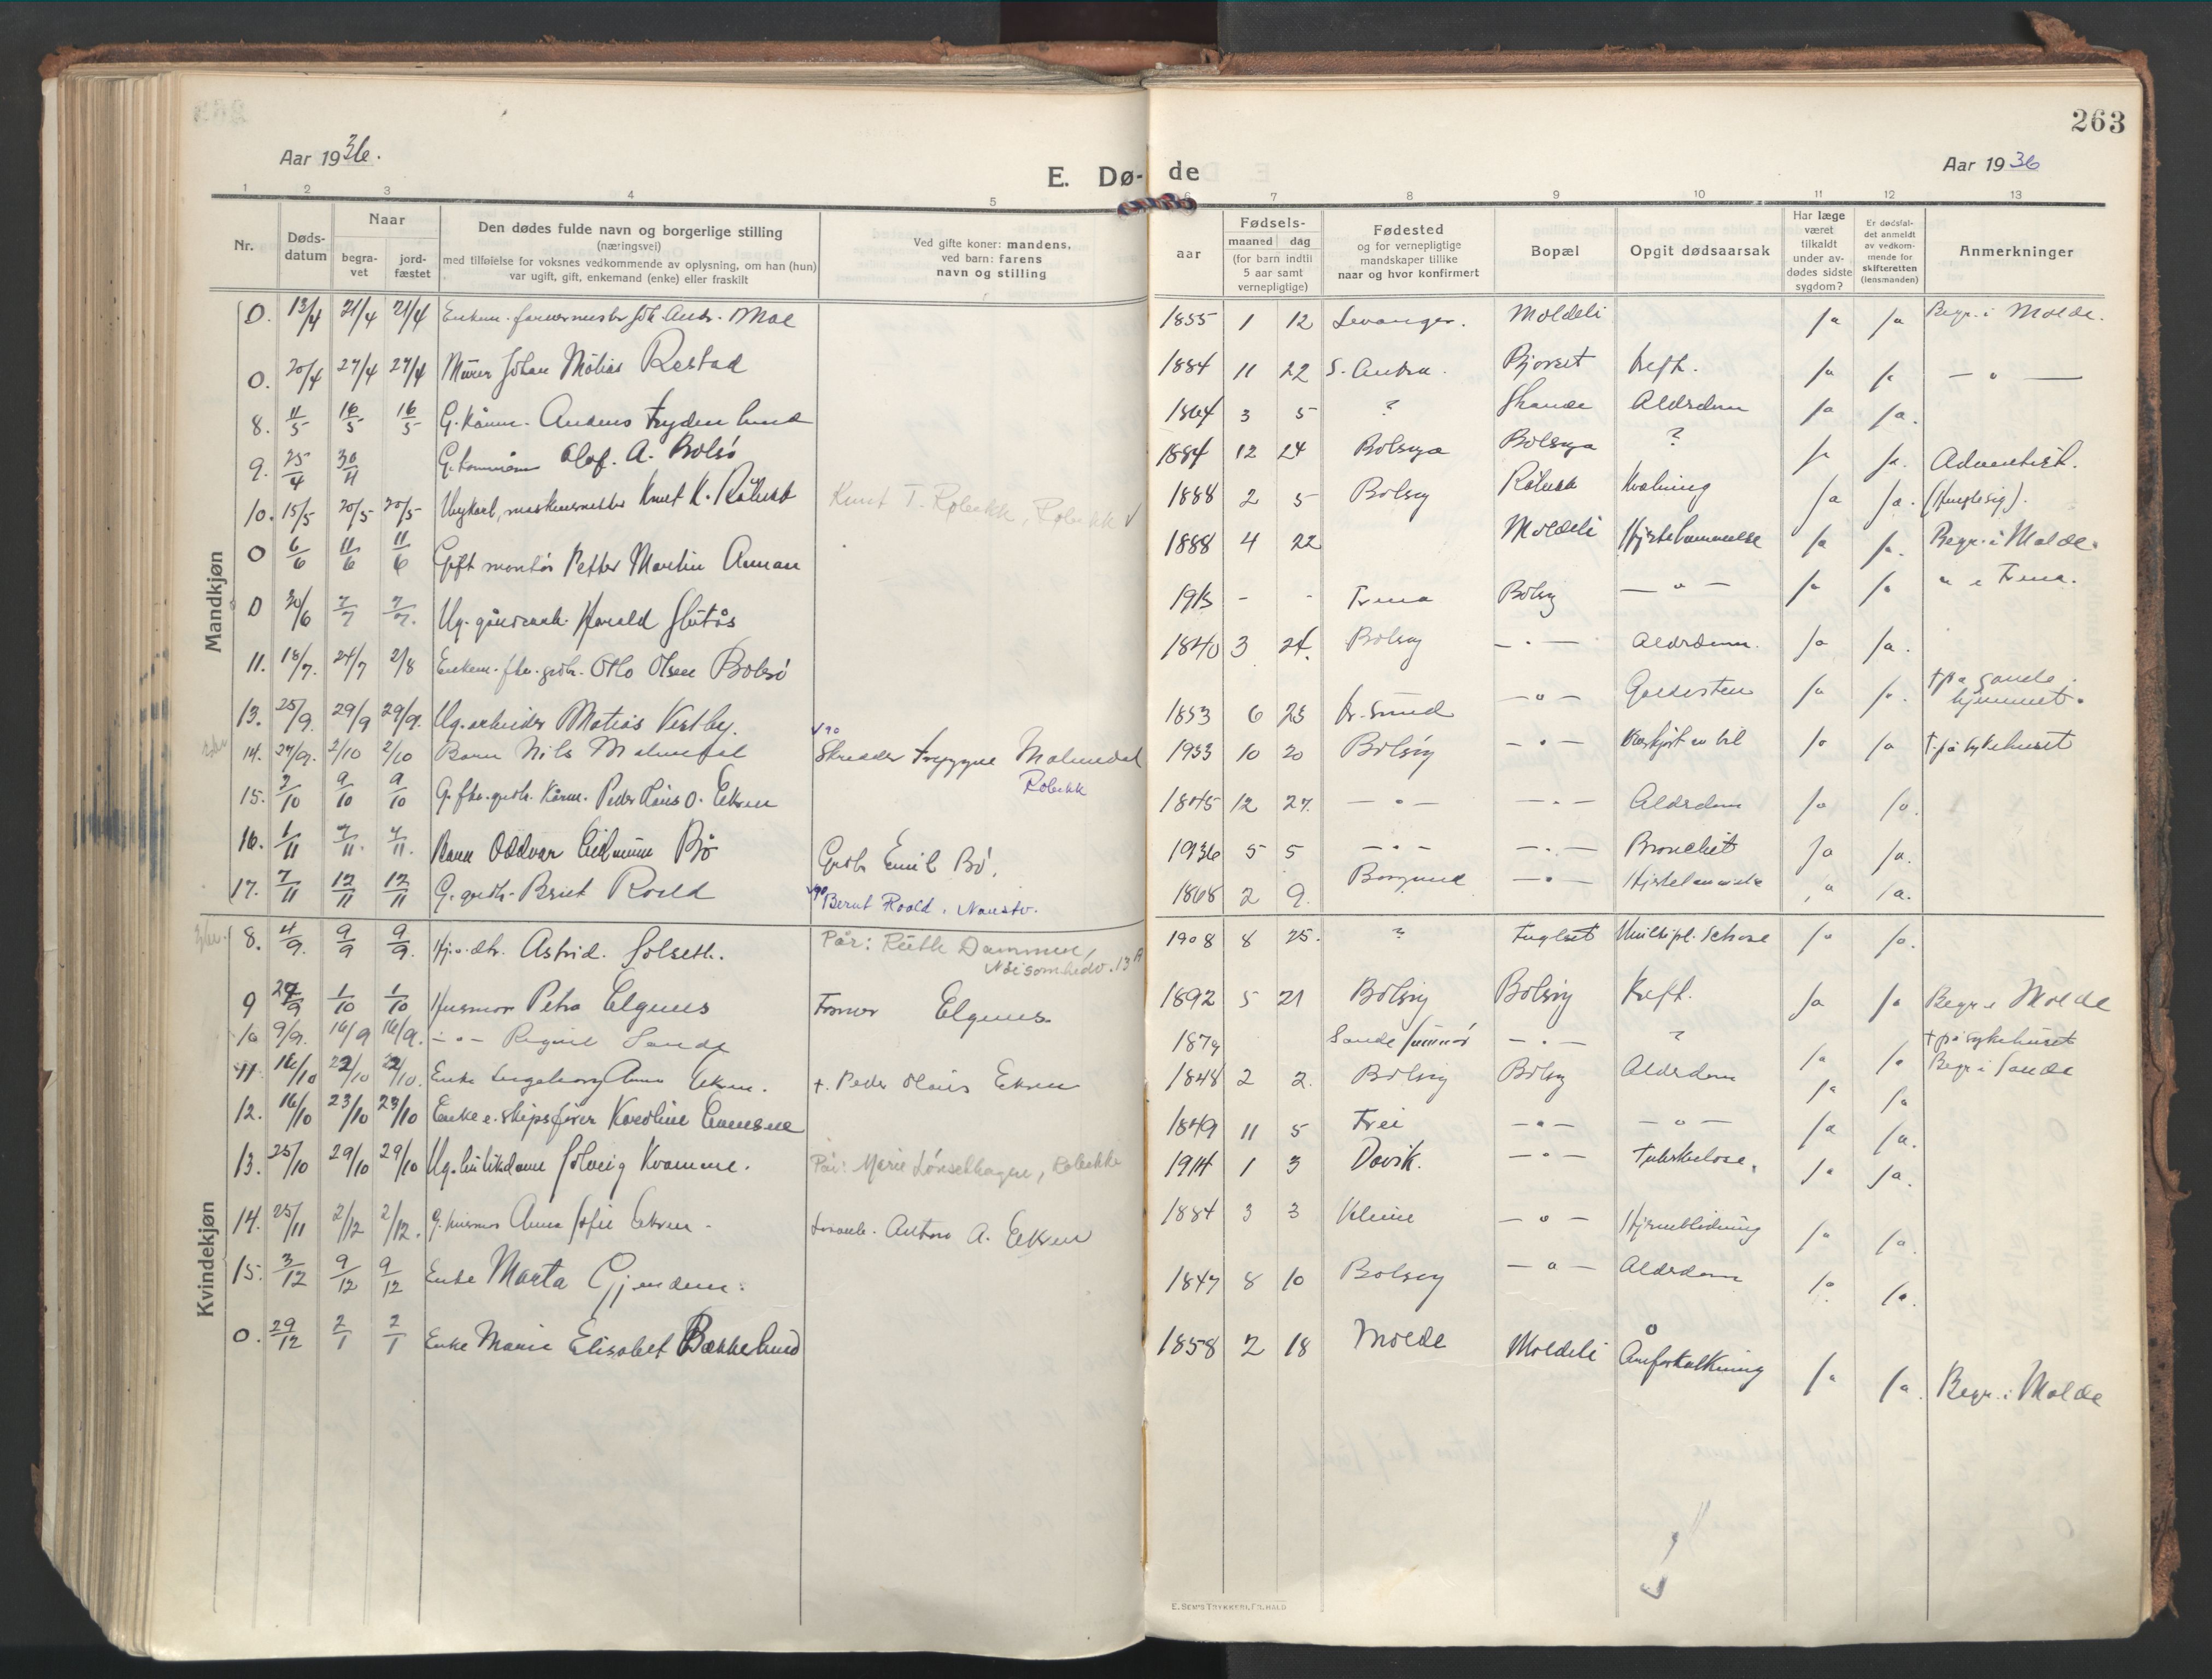 263
Aar 1936.
E. Dø-
de
Aar 1936
1 2 3 4 5 6 7 8 9 10 11 12 13
Nr.
Døds-
datum
Naar
begra-
vet
jord-
fæstet
Den dødes fulde navn og borgerlige stilling
(næringsvei)
med tilføielse for voksnes vedkommende av oplysning, om han (hun)
var ugift, gift, enkemand (enke) eller fraskilt
Ved gifte koner: mandens,
ved barn: farens
navn og stilling
aar
Fødsels-
maaned dag
(for barn indtil
5 aar samt
vernepligtige)
Fødested
og for vernepligtige
mandskaper tillike
naar og hvor konfirmert
Bopæl
Opgit dødsaarsak
Har læge
været
tilkaldt
under av-
dødes sidste
sygdom?
Er dødsfal-
det anmeldt
av vedkom-
mende for
skifteretten
(lensmanden)
Anmerkninger
Mandkjøn
0. 13/4 21/4 21/4 Enkem. Joh. Andr. Moe 1855 1 12 Levanger. Moldeli ja ja Begr. i Molde.
0. 20/4 27/4 27/4 Murer Johan Restad 1884 11 22 Bjorset kreft. ja ja — " —
8. 11/5 16/5 16/5 G. Kårm. Anders 1864 3 5 ? Alderdom ja ja.
9. 25/4 30/4 Olof. A. Bolsø 1884 12 24 Bolsøya Bolsøya ? ja ja. Adventist.
10. 15/5 20/5 20/5 Ungkarl, Knut K. Røbekk Knut T. Røbekk, Røbekk v 1888 2 5 Bolsøy Røbekk Kvelning ja ja.
0 6/6 11/6 11/6 Gift montør Petter Martin Aaman 1888 4 22 Moldeli Hjertelammelse ja ja. Begr. i Molde.
0 30/6 7/7 7/7. Ug. Harald 1913 - - Fræna Bolsøy — " — ja ja " i Fræna.
11. 18/7. 24/7 2/8 Enkem. fhv. grdbr. Otto Olsen Bolsø 1840 3 24. Bolsøy — " — Alderdom. ja ja.
13. 25/9. 29/9 29/9. Ug. arbeider Matias Vestby. 1853 6 23 Kr.sund — " — Galdesten ja ja. † på gamle-
hjemmet.
14. 27/9. 2/10 2/10 Barn Nils Malmedal Skredder Trygve Malmedal
Røbekk 1933 10 20 Bolsøy — " — bil ja ja † på sykehuset
15. 3/10 9/10 9/10 G. fhv. grdbr. Kårm. Peder Olaus O. Eikrem 1845 12 27. — " — — " — Alderdom ja ja.
16. 1/11 7/11. 7/11. Barn Oddvar Bø Grdbr Emil Bø. 1936 5 5 — " — — " — Bronchit ja ja.
17. 7/11 12/11 12/11 G. grdbr. Brnt Roald Bernt Roald. Naustv. 1868 2 9. Borgund — " — Hjertelammelse ja ja.
Kvindekjøn
8. 4/9. 9/9 9/9. Hj.v. dtr. Astrid Solseth. Pår: Ruth Dammen,
Nøisomhedv. 13 A 1908 8 25. ? Fuglset Multipl. Sclrose ja ja.
9 27/9 1/10 1/10 Husmor Petra Elgenes Elgenes 1892 5 21 Bolsøy Bolsøy Kreft. ja ja Begr. i Molde
10 9/9. 16/9 16/9. — " — Sande 1879 Sande Sunnmør — " — ? ja ja † på sykehuset
Begr. i Sande
11. 16/10 22/10 22/10. Enke Ingeborg Anna Eikrem. †. Peder Olaus Eikrem 1848 2 2. Bolsøy Bolsøy Alderdom ja ja
12. 16/10 23/10 23/10 Enke e. skipsfører Karoline Evensen 1849 11 5 Frei — " — — " — ja ja.
13. 25/10 29/10 29/10 Ug. butikdame Solveig Kvamme. Pår: Marie Lønsethagen, Røbekk 1914 1 3 Davik. — " — Tuberkulose. ja ja.
14. 25/11 2/12 2/12. G. husmor Anna Sofie Eikrem. Anton A. Eikrem 1884 3 3 Kleive — " — Hjerneblødning ja ja.
15. 3/12 9/12 9/12 Enke Marta Gjendem. 1847 8 10 Bolsøy — " — Alderdom ja ja.
0. 29/12 2/1 2/1 Enke Marie Elisabet Bækkelund 1858 2 18 Molde Moldeli Åreforkalkning ja ja. Begr. i Molde
E. SEM'S TRYKKERI, FR.HALD